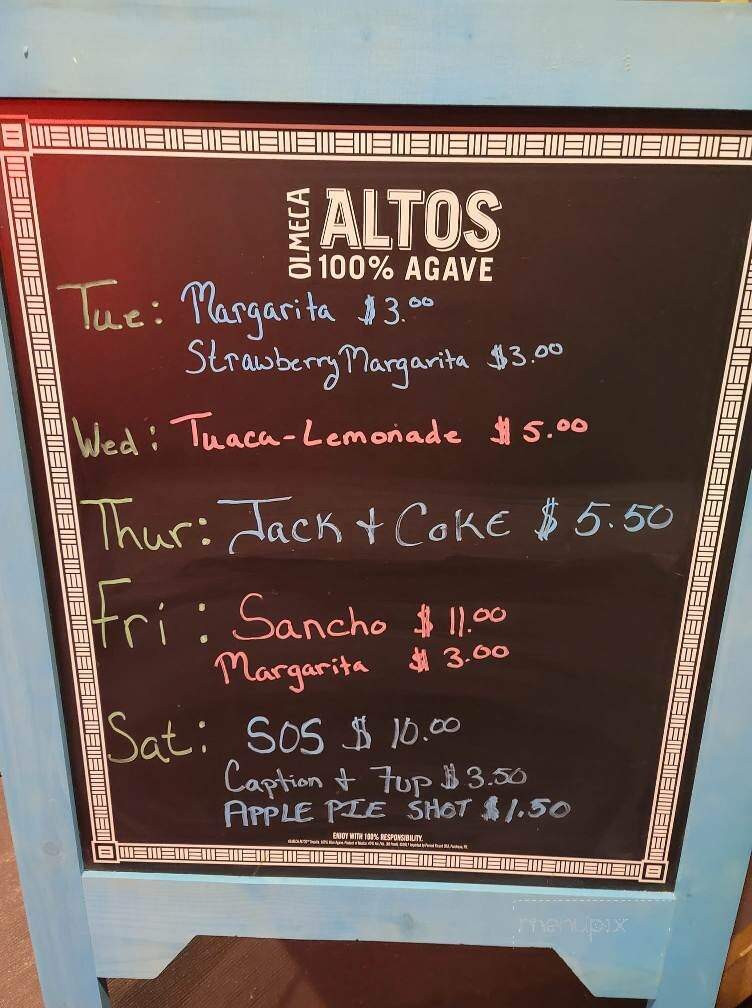 OLMECA ALTOS
100% AGAVE
Tue: Margarita $3.00
Strawberry Margarita $3.00
Wed: Tuaca-Lemonade $5.00
Thur: Jack + Coke $5.50
Fri: Sancho $11.00
Margarita $3.00
Sat: SOS $10.00
Caption + 7up $3.50
APPLE PIE SHOT $1.50
ENJOY WITH 100% RESPONSIBILITY.
menupix